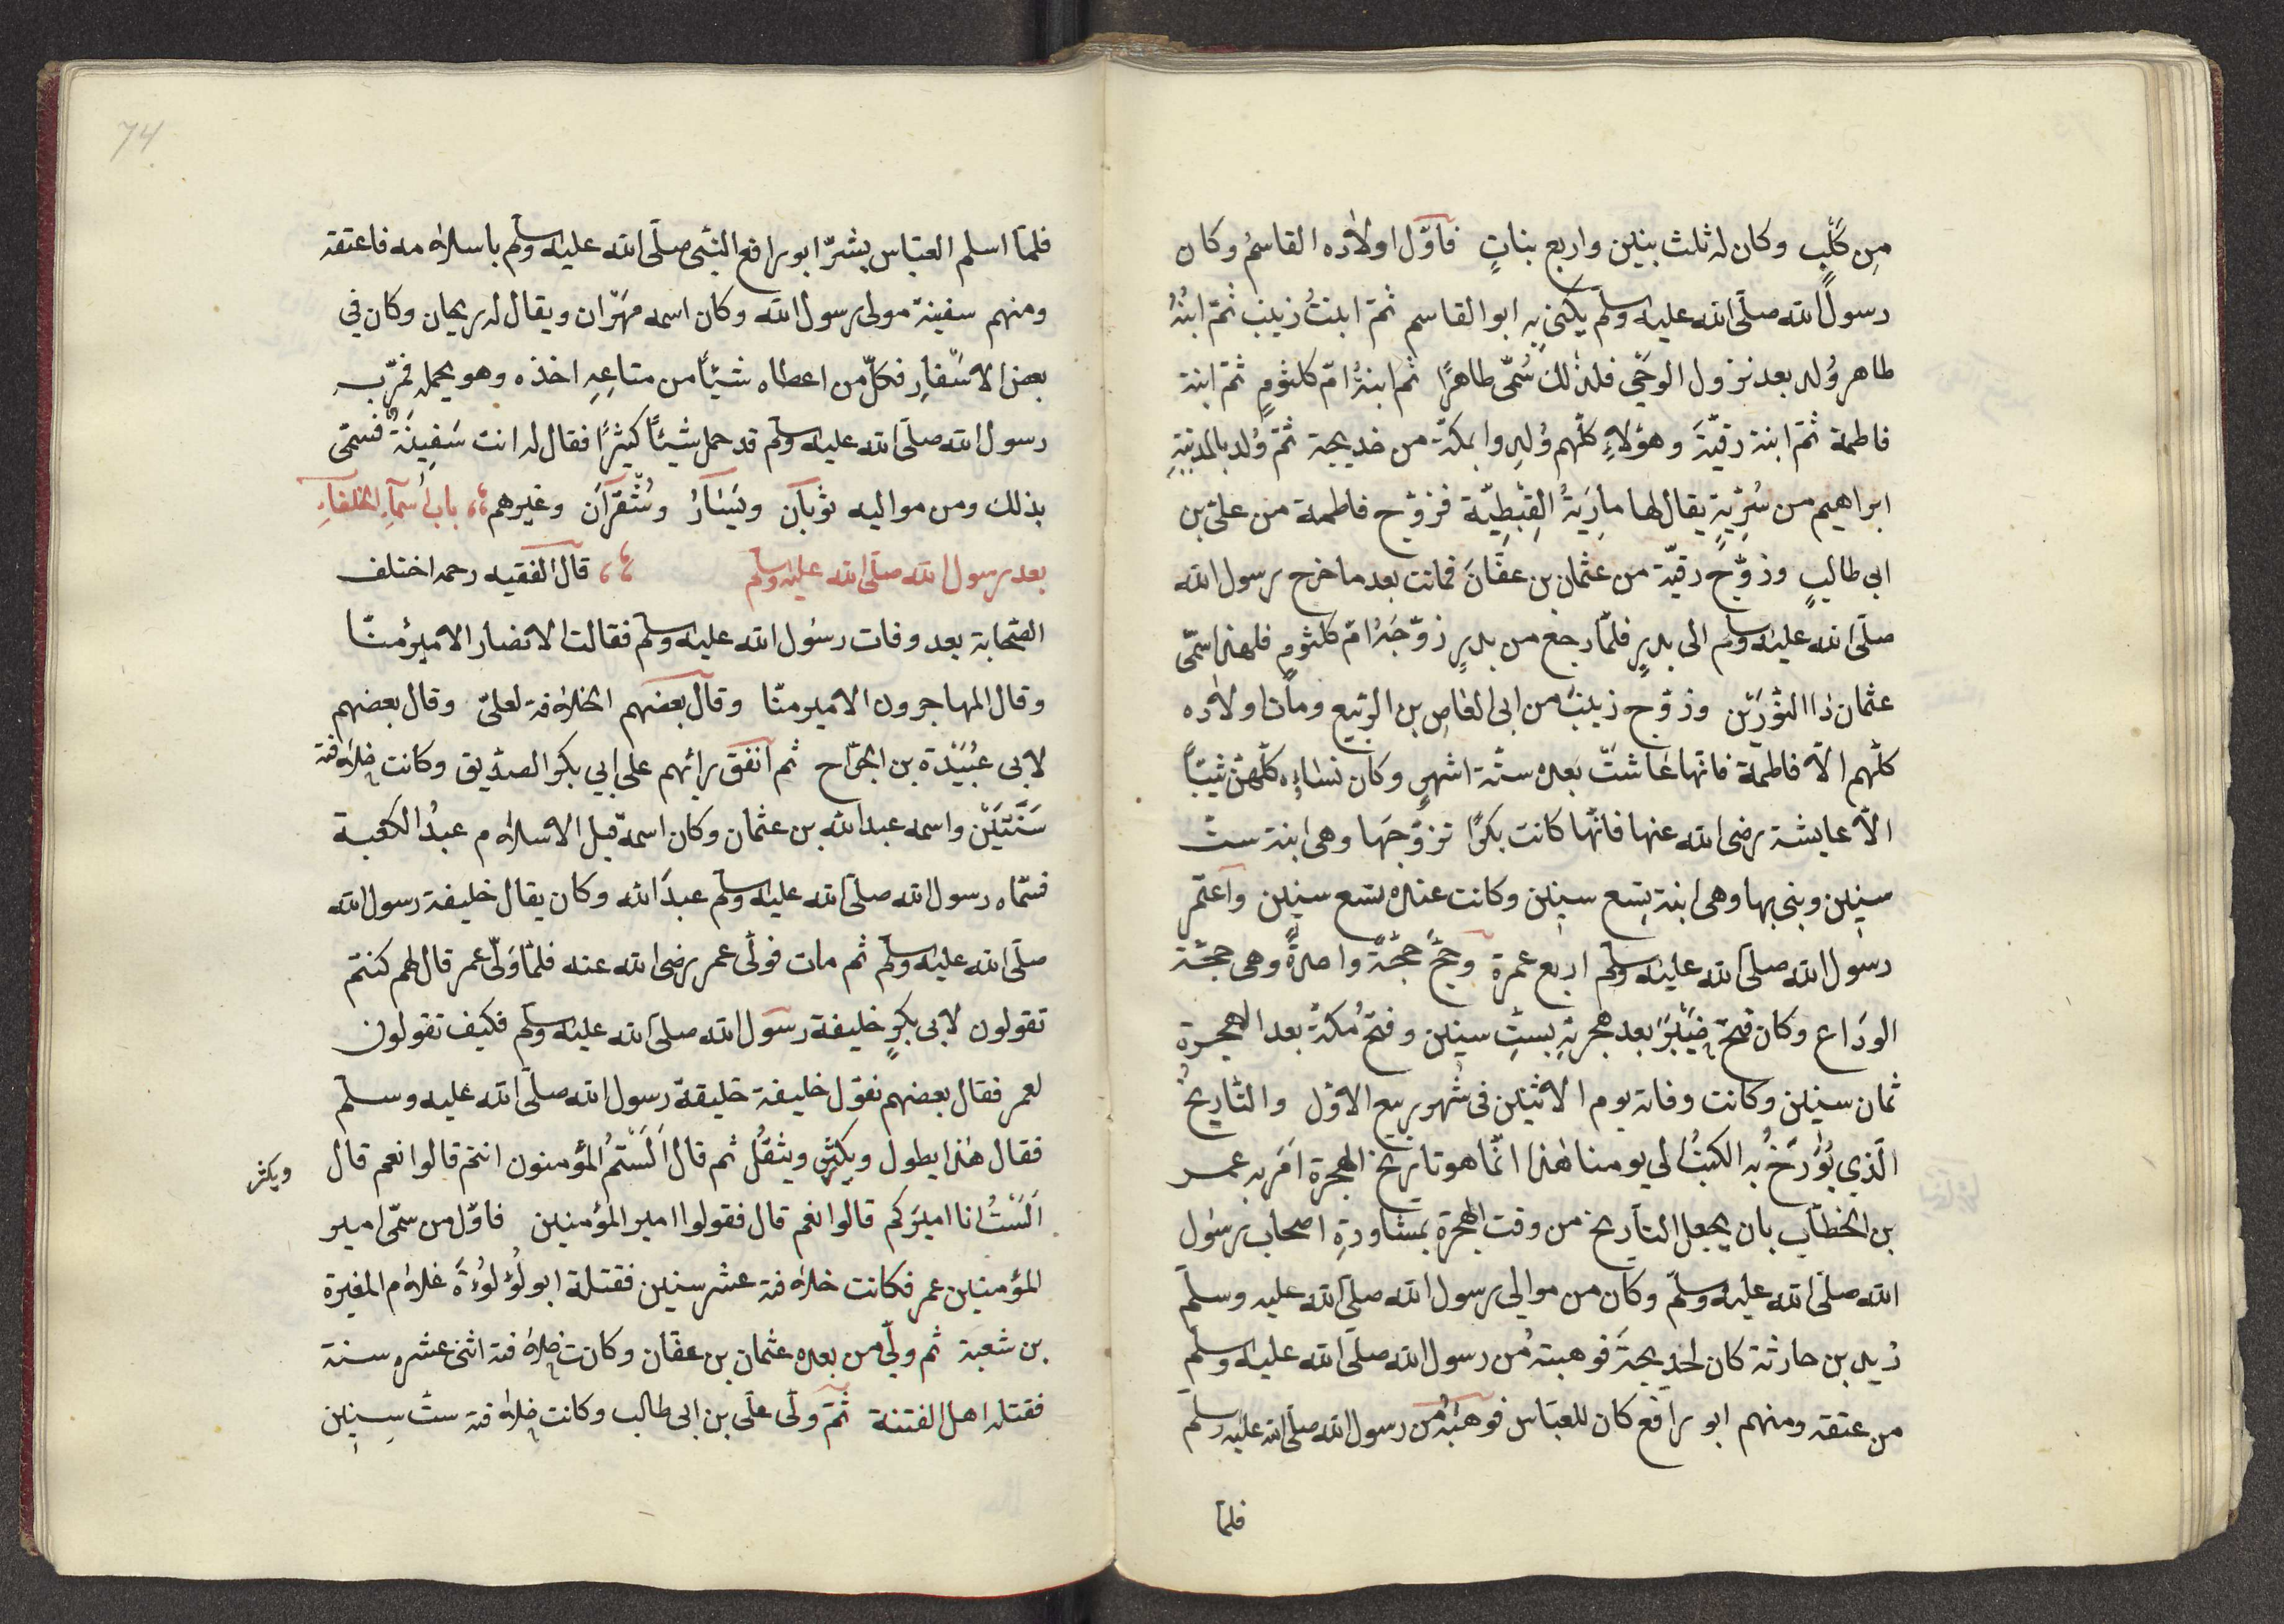 من كَلْبٍ وكان له ثلث بنين واربع بناتٍ فاوّل اولاده القاسمُ وكان
رسول الله صلّى الله عليه وسلّم يكنى به ابو القاسم ثمّ ابنتُ زينب ثمّ ابنُهُ
طاهر وُلد بعد نزول الوحْيِ فلذلك سُمّى طاهرًا ثم ابنةُ امّ كلثومٍ ثمّ ابنة
فاطمة ثمّ ابنة رقيّةَ وهؤلاءِ كلّهم وُلدوا بمكّة من خديجة ثمّ وُلد بالمدينةِ
ابراهيم من سُرّيّةٍ يقال لها مارِيَةُ القِبْطِيّة فزوّج فاطمة من علىّ بن
ابى طالبٍ وزوّج رقيّة من عثمان بن عفّانَ فماتت بعد ما خرج رسول الله
صلّى الله عليه وسلم الى بدرٍ فلمّا رجع من بدرٍ زوّجَهُ امّ كلثومٍ فلهذا سمّى
عثمان ذا النّورَيْن وزوّج زينبَ من ابى العاصِ بن الرّبيع ومات اولاده
كلّهم الاّ فاطمة فانّها عاشتْ بعده ستّة اشهرٍ وكان نساؤه كلّهنّ ثيّبًا
الاّ عايشة رضى الله عنها فانّها كانت بكرًا تزوّجَها وهى ابنة ستّ
سنين وبنى بها وهى ابنة تِسع سنين وكانت عنده تسع سنين واعتمر
رسول الله صلى الله عليه وسلم اربع عمرة وحجّ حجّةً واحدةً وهى حجّة
الوَدَاع وكان فتحُ خَيْبَرَ بعد هجرتهِ بستِّ سنين وفتحُ مكّةَ بعد الهجرةِ
ثمان سنين وكانت وفاته يوم الاثنين فى شهر ربيع الاوّل والتّاريخُ
الّذي يُؤَرَّخُ به الكتبُ الي يومنا هٰذا انّما هو تاريخ الهجرة اَمَر به عمر
بن الخطّابِ بان يجعل التأريخ من وقت الهجرة بمشاورةِ اصحاب رسول
الله صلّى الله عليه وسلّم وكان من موالي رسول الله صلّى الله عليه وسلم
زيد بن حارثة كان لخديجةَ فوهبته من رسول الله صلّى الله عليه وسلّم
من عتقه ومنهم ابو رافع كان للعبّاس فوهَبَهُ من رسول الله صلى الله عليه وسلم
فلمّا
74
فلمّا اسلم العبّاس بشّرَ ابو رافع النبّى صلّى الله عليه وسلم باسلامه فاعتقه
ومنهم سفينة مولى رسول الله وكان اسمه مهَرّان ويقال له ريحان وكان في
بعض الاسّفارِ فكلّ من اعطاه شيئًا من متاعِهِ اخذه وهو يحمله فمرّ به
رسول الله صلّى الله عليه وسلم قد حمل شيئًا كثيرًا فقال له انت سَفِينَةٌ فسمّى
بذلك ومن مواليه ثوبان ويَسَارُ وشُقْرَان وغيرهم باب أسمآء الخلفآءِ
بعد رسول الله صلّى الله عليه وسلم قال الفقيه رحمه اختلف
الصّحابة بعد وفات رسول الله عليه وسلم فقالت الانصار الامير منّا
وقال المهاجرون الامير منّا وقال بعضهم الخلافة لعلىّ وقال بعضهم
لابى عُبَيْدَة بن الجرّاح ثم اتفق رائهم على ابي بكر الصدّيق وكانت خلافته
سَنَتَيْن واسمه عبد الله بن عثمان وكان اسمه قبل الاسلام عبدُ الكعبة
فسمّاه رسول الله صلّى الله عليه وسلم عبدَ الله وكان يقال خليفة رسول الله
صلّى الله عليه وسلم ثم مات فولّى عمر رضى الله عنه فلمّا وَلّى عمر قال لهم كنتم
تقولون لابى بكرٍ خليفة رسول الله صلّى الله عليه وسلم فكيف تقولون
لعمر فقال بعضهم نقول خليفة خليفة رسول الله صلّى الله عليه وسلم
فقال هٰذا يطول ويكثر ويثقُل ثم قال اَلَسْتمُ المؤمنون انتم قالوا نعم قال
ويكثر
اَلَسْتُ انا اميرَكم قالوا نعم قال فقولوا امير المؤمنين فاوّل من سمّى امير
المؤمنين عمر فكانت خلافته عشر سنين فقتلة ابو لُؤلُوُءَةَ غلام المغيرة
بن شعبة ثم وليّ من بعده عثمان بن عفّان وكانت خلافته اثنى عشر سنة
فقتله اهل الفتنة ثمّ ولّى علىّ بن ابى طالب وكانت خلافته ستّ سنين